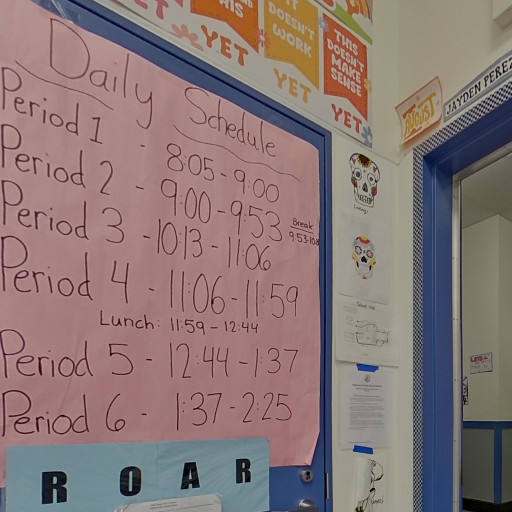 THIS
YET
IT
DOESN'T
WORK
YET
THIS
DOESN'T
MAKE
SENSE
YET
AUGUST
JAYDEN PEREZ
Daily Schedule
Period 1 - 8:05 - 9:00
Period 2 - 9:00 - 9:53
Break
Period 3 - 10:13 - 11:06
Period 4 - 11:06 - 11:59
Lunch: 11:59 - 12:44
Period 5 - 12:44 - 1:37
Period 6 - 1:37 - 2:25
ROAR